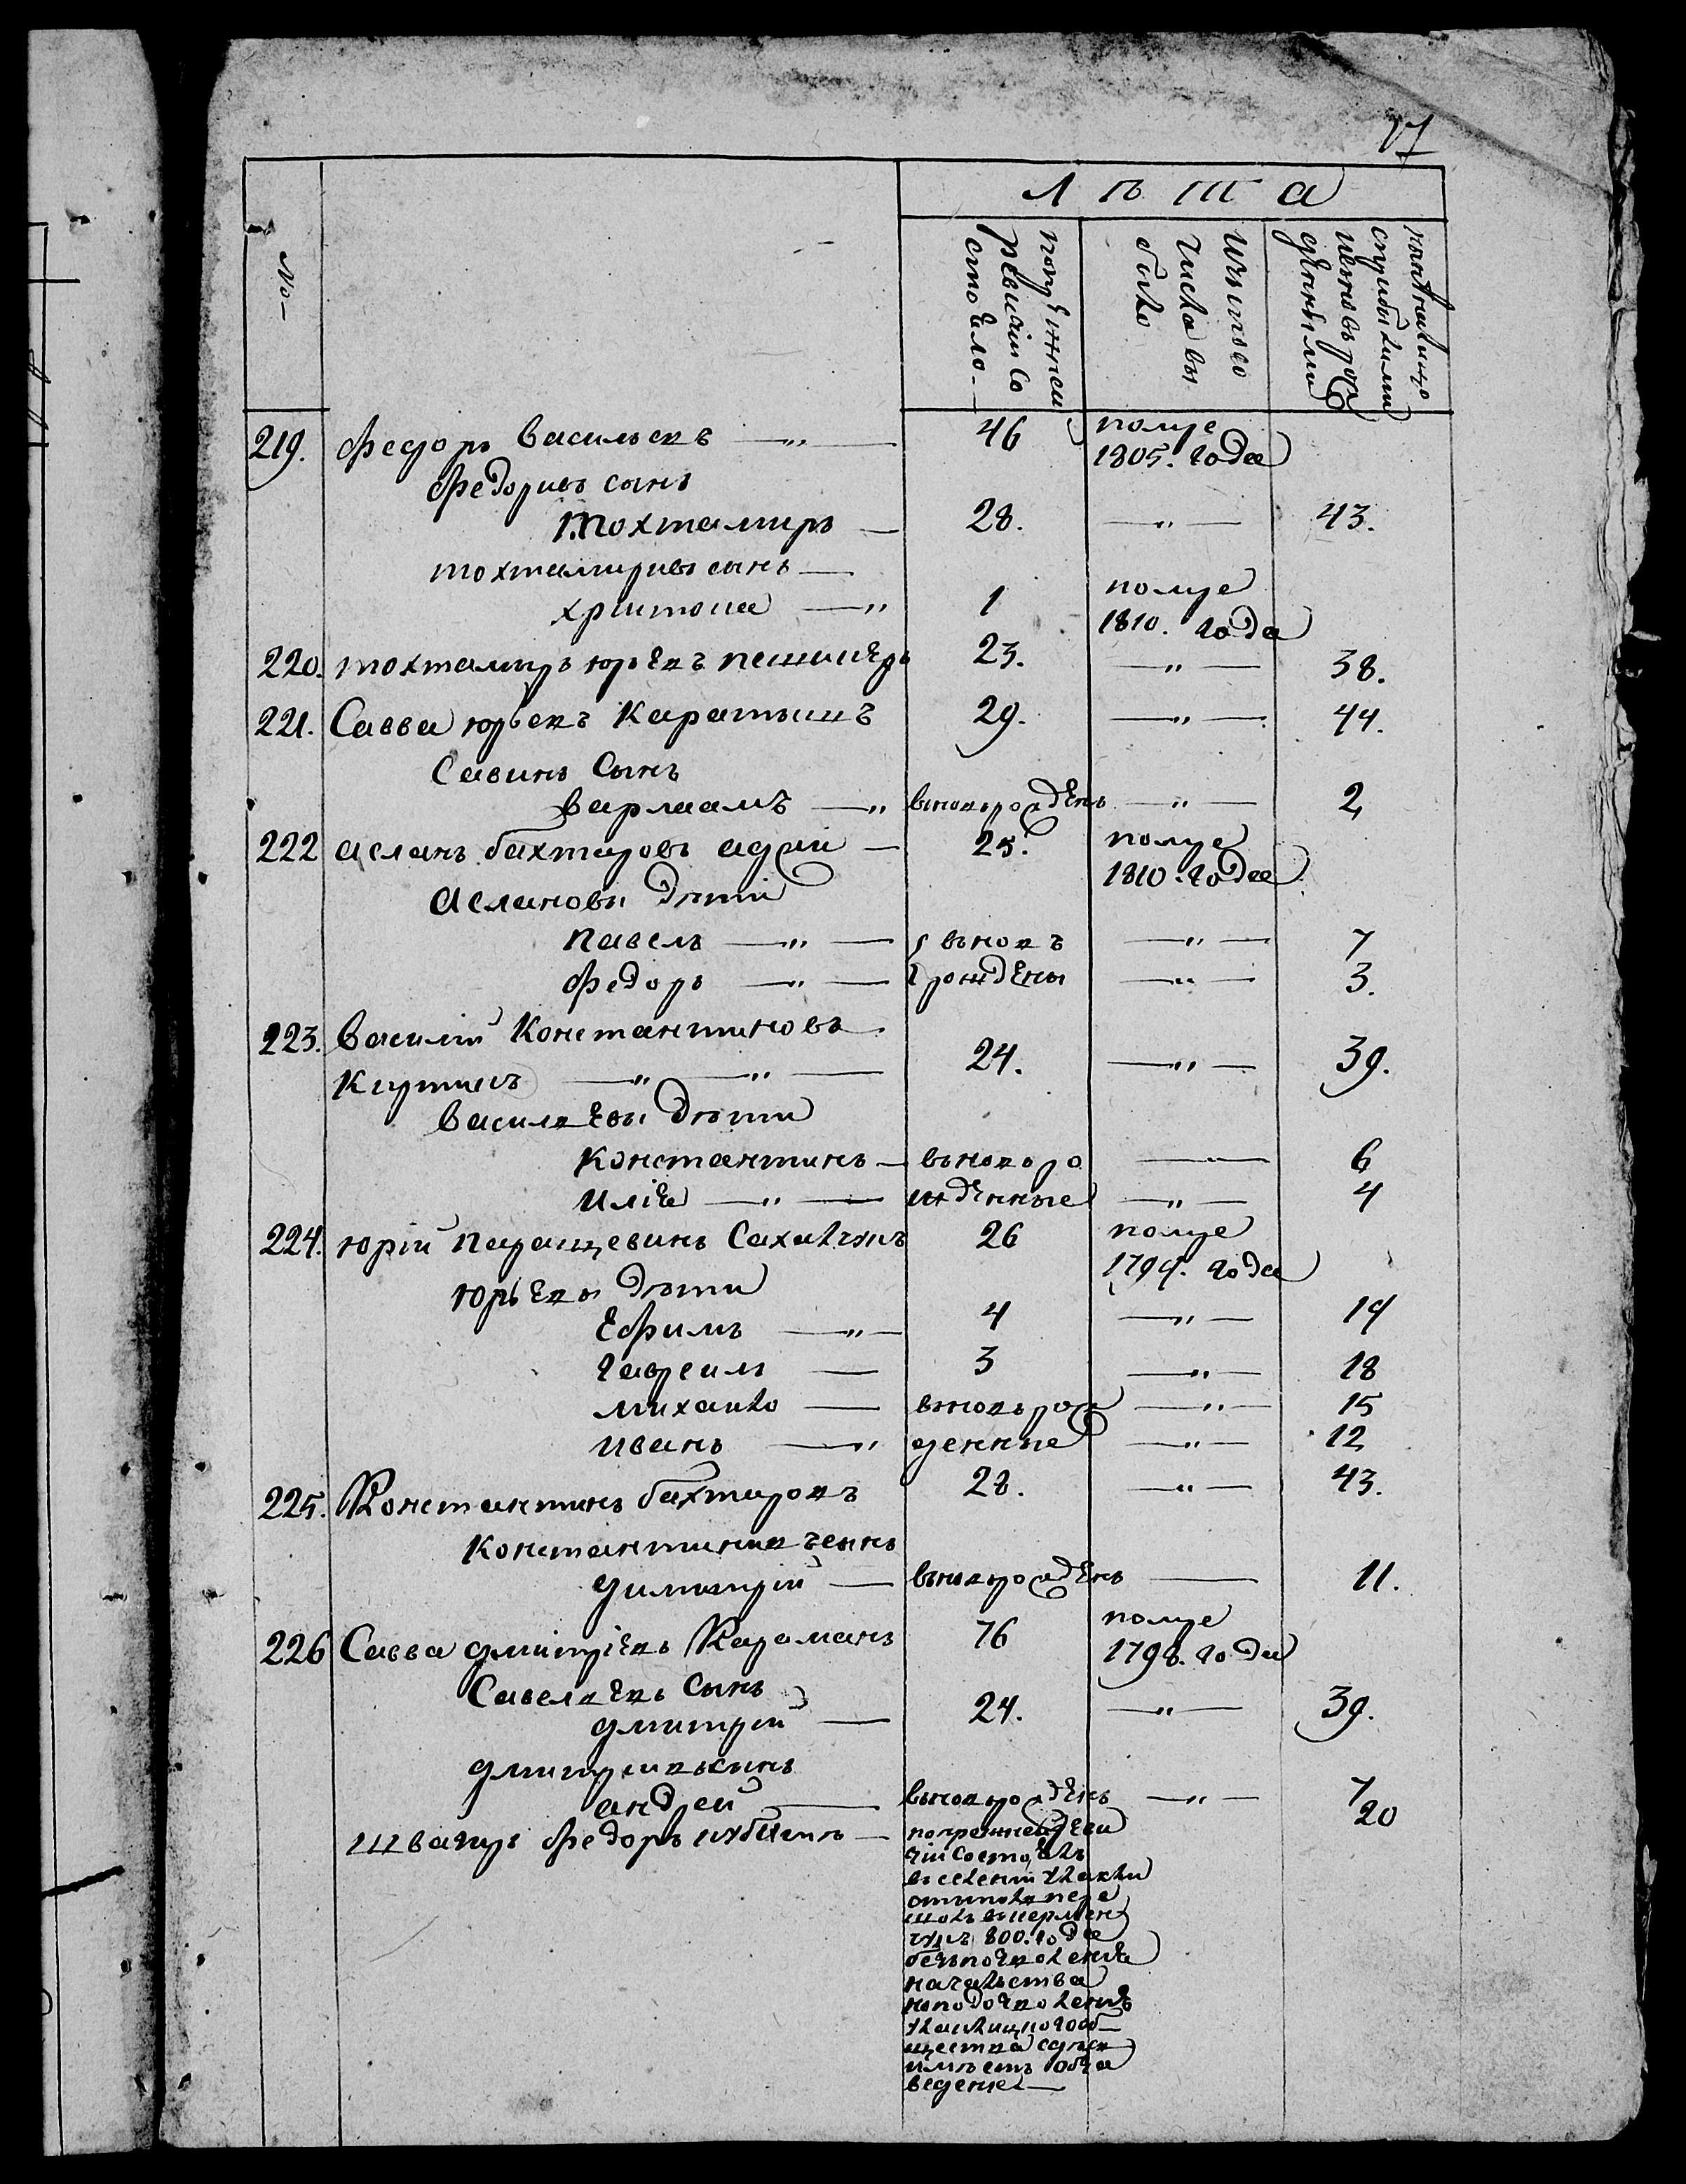 17
№
Лѣта
по прежней ревизіи состояло
изъ того числа выбыло
ныне на лицо с прибылыми и вновь рожденными
219. Федоръ Васильевъ — 46 помре
1805. года
Федоровъ сынъ
Тохтамиръ — 28. — 43.
Тохтамировъ сынъ —
— 1 помре
1810. года
220. Тохтамиръ Юрьевъ — 23. — 38.
221. Савва Юрьевъ Каратышъ 29. — 44.
Савинъ Сынъ
Варлаамъ — вновь рожденъ — 2
222 Асланъ бахтаровъ — 25. помре
1810. года
Аслановы дѣти
Павелъ — вновь — 7
Федоръ — рождены — 3.
223. Василій Константиновъ
24. — 39.
Васильевы дѣти
Константинъ — вновь ро — 6
Иліа — жденные — 4
224. Юрій Паращевинъ 26 помре
года
Юрьевы дѣти
Ефимъ — 4 — 19
Гавреилъ — 3 — 18
Михайло — вновь рож — 15
Иванъ — денные — 12
225. Константинъ бахтаровъ 28. — 43.
Константиновъ сынъ
Димитрій — вновь рожденъ — 11.
226 Савва Дмитріевъ Караманъ 76 помре
1798. года
Савельевъ Сынъ
Дмитрій — 24. — 39.
Дмитріевъ сынъ
Андрей — вновь рожденъ — 7
Федоръ — по прежней реви 20
зіи состоялъ
въ селеніи
пере
шолъ
800. года
безъ позволеніе
начальства
но по дозволенію
об
щества
имѣетъ обза
веденіе —